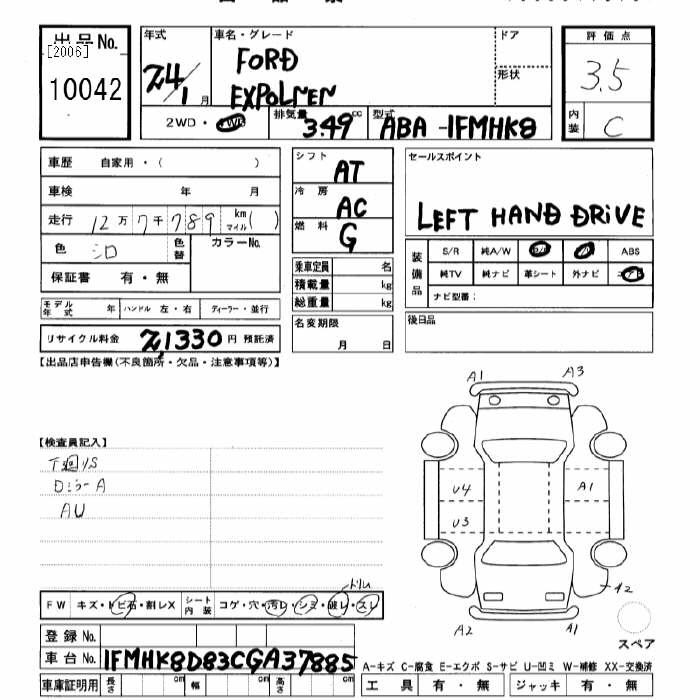 出品 No. 年式 車名・グレード ドア 評価点
[2006] FORD
10042 24/1 月 EXPOLRER 形状 3.5
2WD・4WD 排気量 3.49 cc 型式 ABA-1FMHK8 内装 C
車歴 自家用・( ) シフト AT セールスポイント
車検 年 月 冷房 AC
走行 12万7千789 km マイル ( ) 燃料 G LEFT HAND DRIVE
色 シロ 色替 カラーNo. 装備品 S/R 純A/W ABS
保証書 有・無 乗車定員 名 純TV 純ナビ 革シート 外ナビ
積載量 kg ナビ型番:
モデル年式 年 ハンドル 左・右 ディーラー・並行 総重量 kg
リサイクル料金 21330 円 預託済 名変期限 月 日 後日品
【出品店申告欄(不良箇所・欠品・注意事項等)】
A1 A3
【検査員記入】
Dミラ-A U4 A1
AU U3
FW キズ・トビ石・割レX シート内装 コゲ・穴・汚レ・シミ・破レ・スレ A2
登録 No. A2 A1 スペア
車台 No. 1FMHK8D83CGA37885
A-キズ C-腐食 E-エクボ S-サビ U-凹ミ W-補修 XX-交換済
車庫証明用 長さ cm 幅 cm 高さ cm 工具 有・無 ジャッキ 有・無